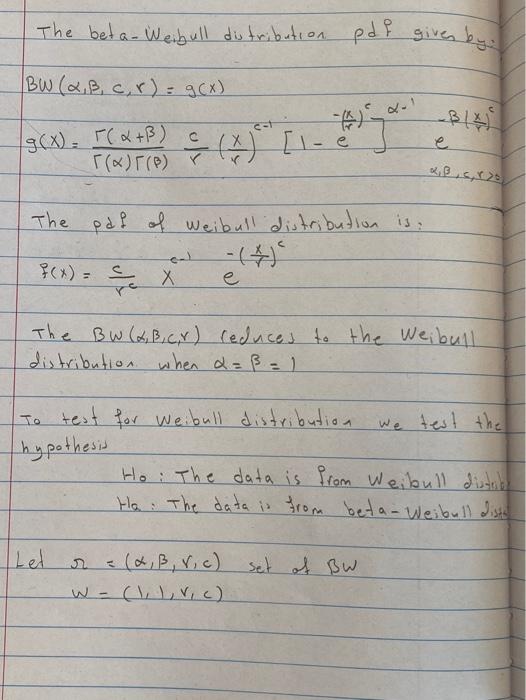 The beta-Weibull distribution pdf given by:
BW(α,β,c,r) = g(x)
g(x) = Γ(α+β)/Γ(α)Γ(β) c/r (x/r)^(c-1) [1 - e^(-(x/r)^c)]^(α-1) e^(-β(x/r)^c)
α,β,c,r>0
The pdf of weibull distribution is:
f(x) = c/r^c x^(c-1) e^(-(x/r)^c)
The BW(α,β,c,r) reduces to the Weibull
distribution when α = β = 1
To test for Weibull distribution we test the
hypothesis
Ho : The data is from Weibull distrib
Ha : The data is from beta-Weibull dist
Let Ω = (α,β,r,c) set of BW
W = (1,1,r,c)